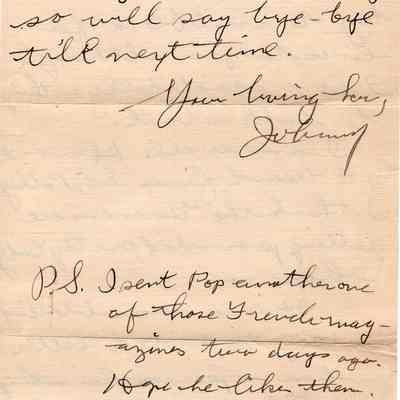 so will say bye-bye
till next time.
Your loving bro,
Johnny
P.S. I sent Pop another one
of those French mag-
azines two days ago.
Hope he likes them.